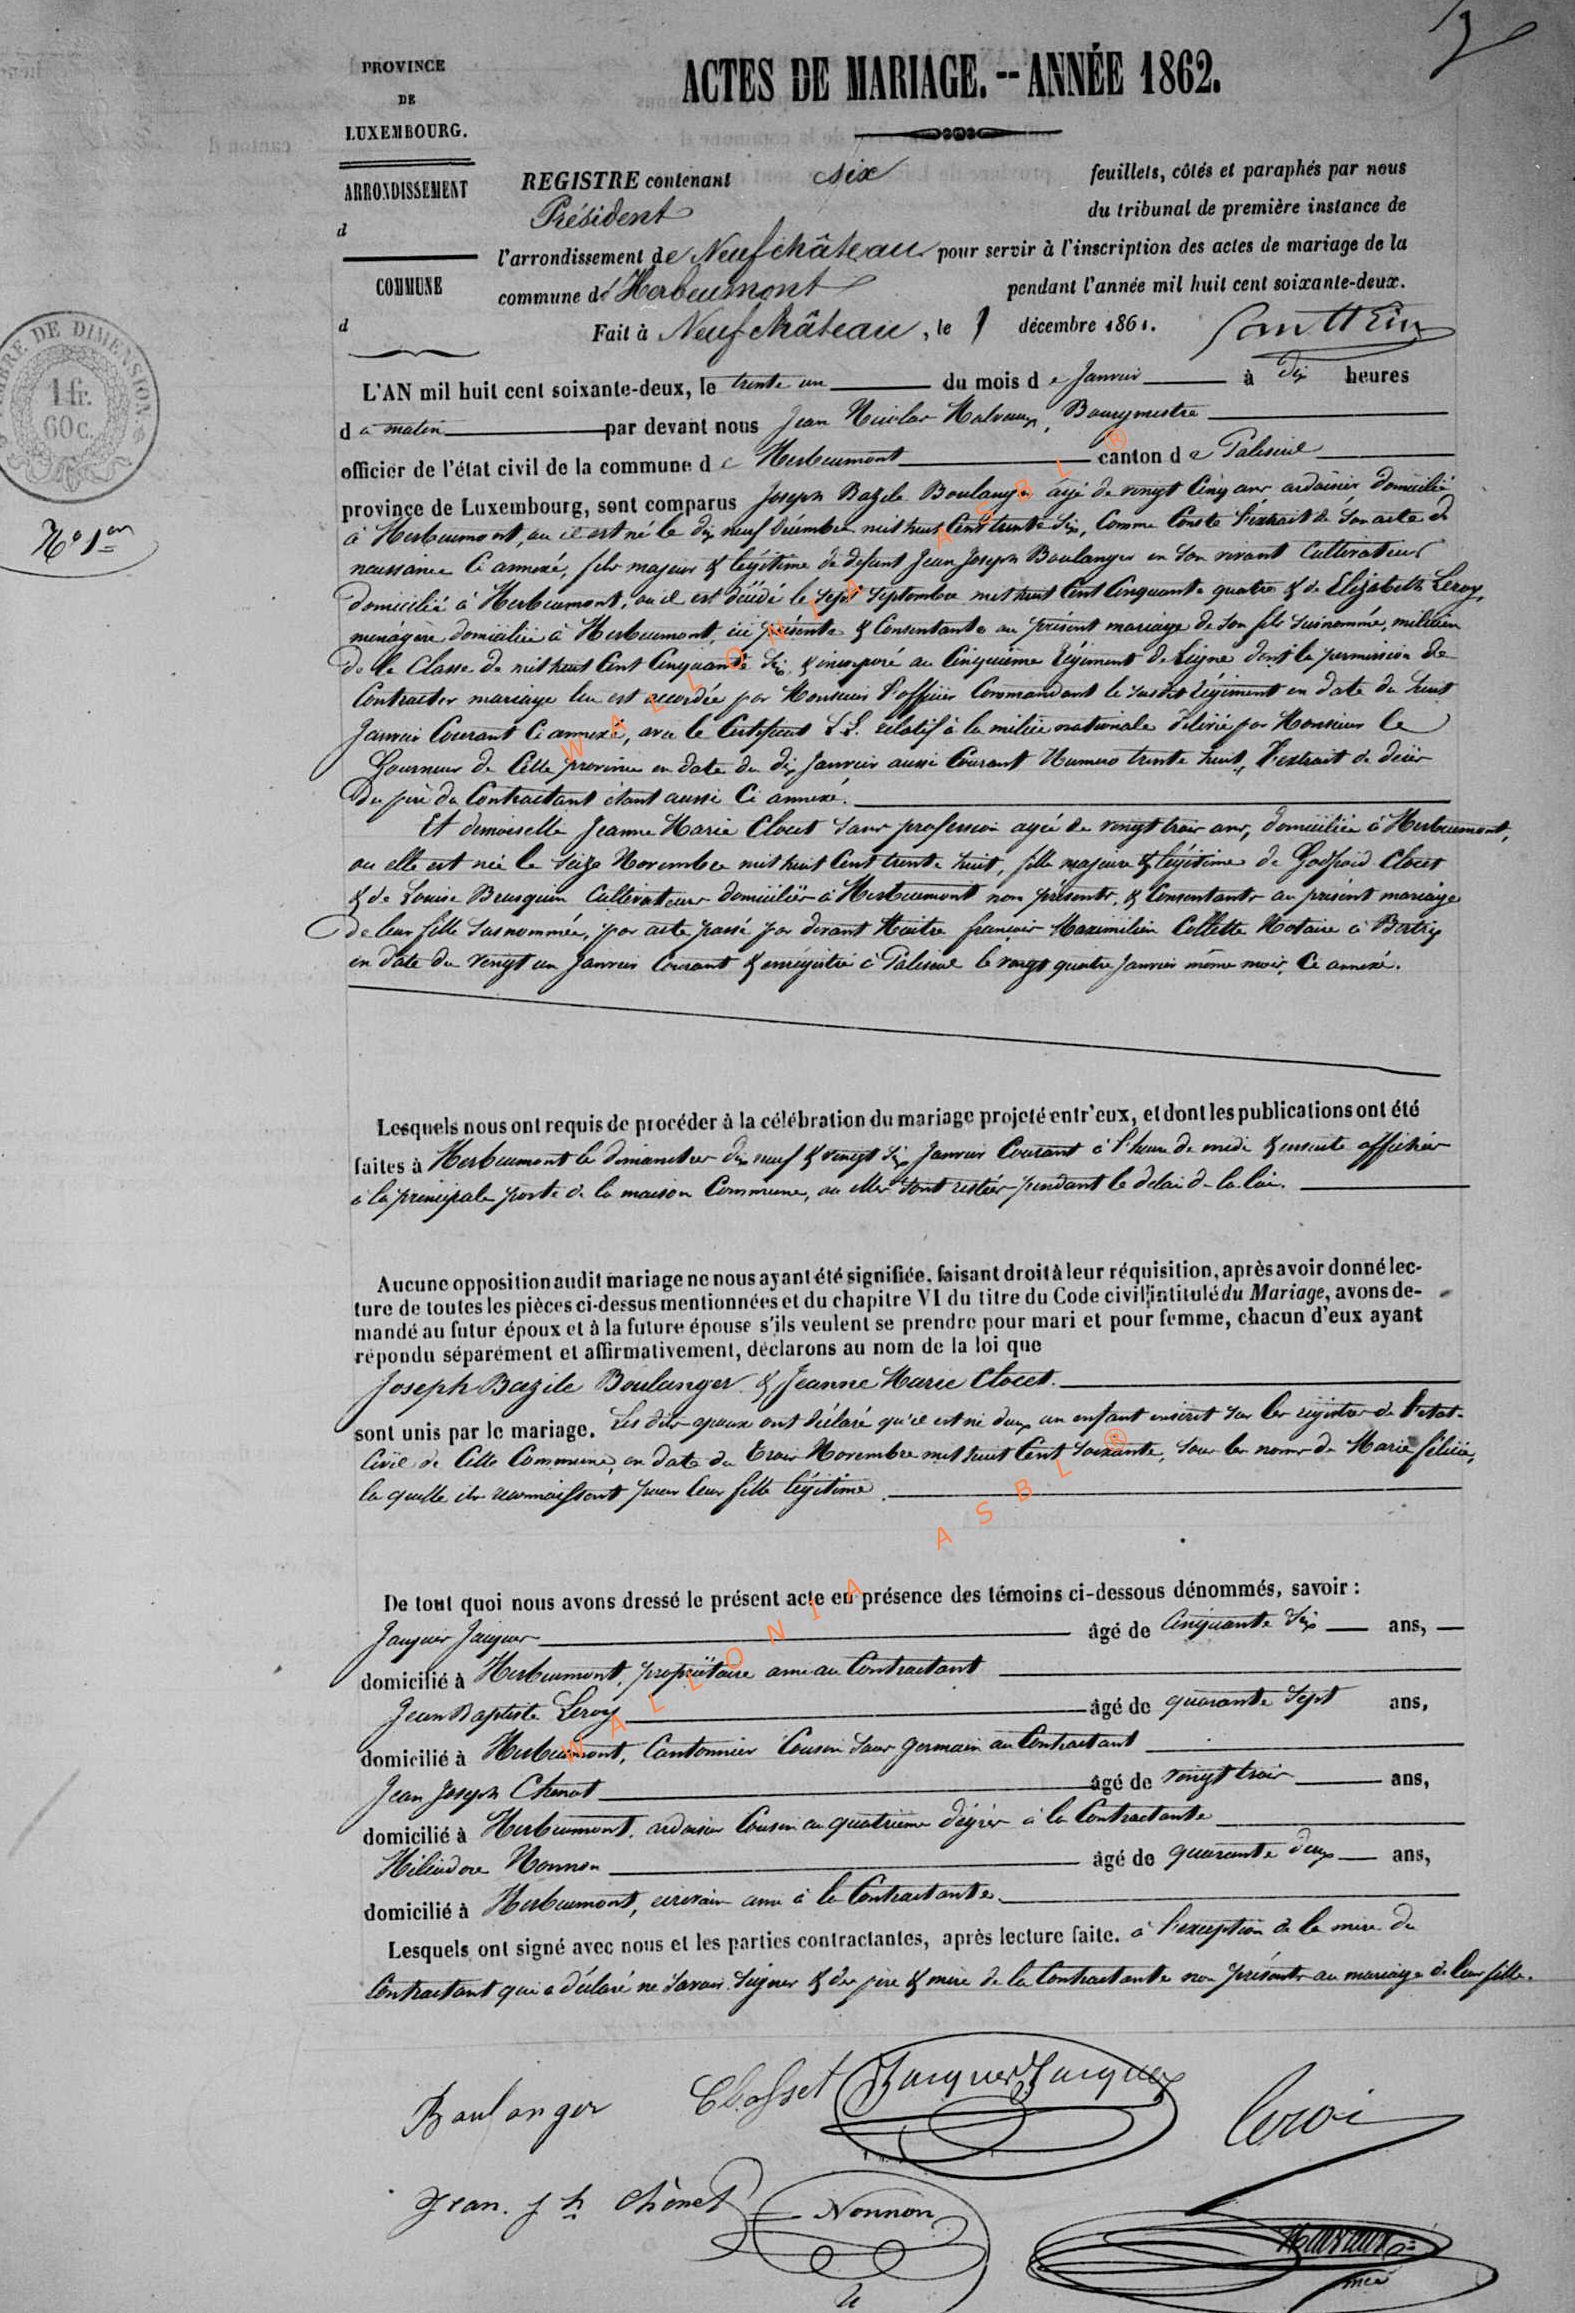 PROVINCE
DE
LUXEMBOURG.
ARRONDISSEMENT
d
COMMUNE
d
TIMBRE DE DIMENSION.
1 fr.
60 c.
N° 1er
ACTES DE MARIAGE. -- ANNÉE 1862.
REGISTRE contenant six feuillets, côtés et paraphés par nous
Président du tribunal de première instance de
l'arrondissement de Neufchâteau pour servir à l'inscription des actes de mariage de la
commune de Herbeumont pendant l'année mil huit cent soixante-deux.
Fait à Neufchâteau, le 1 décembre 1861.
L'AN mil huit cent soixante-deux, le trente un du mois de Janvier à dix heures
du matin par devant nous Jean Nicolas Malvaux, Bourgmestre
officier de l'état civil de la commune de Herbeumont canton de Paliseul
province de Luxembourg, sont comparus Joseph Bazile Boulanger âgé de vingt cinq ans ardoisier domicilié
à Herbeumont, ou il est né le dix neuf Décembre mil huit cent trente six, comme conste l'extrait de son acte de
naissance ci annexé, fils majeur & légitime de défunt Jean Joseph Boulanger en son vivant cultivateur
domicilié à Herbeumont, ou il est décédé le sept septembre mil huit cent cinquante quatre & de Elizabeth Leroy,
ménagère domiciliée à Herbeumont, ici présente & consentante au présent mariage de son fils susnommé, milicien
de la classe de mil huit cent cinquante six & incorporé au cinquième régiment de ligne dont la permission de
contracter mariage lui est accordée par Monsieur l'officier commandant le susdit régiment en date du huit
Janvier courant ci annexé, avec le certificat L.L. relatif à la milice nationale délivré par Monsieur le
Gourneur de cette province en date du dix Janvier aussi courant Numero trente huit, l'extrait de décès
du père du contractant étant aussi ci annexé.
Et demoiselle Jeanne Marie Closet sans profession agée de vingt trois ans, domiciliée à Herbeumont,
ou elle est née le seize Novembre mil huit cent trente huit, fille majeure & légitime de Godfroid Closet
& de Louise Brusquin cultivateurs domiciliés à Herbeumont non présents, & consentants au présent mariage
de leur fille susnommée, par acte passé par devant Maitre françois Maximilien Collette Notaire à Bertrix
en date du vingt un Janvier courant & enrégistré à Paliseul le vingt quatre Janvier même mois, ci annexé.
Lesquels nous ont requis de procéder à la célébration du mariage projeté entr'eux, et dont les publications ont été
faites à Herbeumont les dimanches dix neuf & vingt six Janvier courant à l'heure de midi & ensuite affichées
à la principale porte de la maison commune, ou elles sont restées pendant le délai de la loi.
Aucune opposition audit mariage ne nous ayant été signifiée, faisant droit à leur réquisition, après avoir donné lec-
ture de toutes les pièces ci-dessus mentionnées et du chapitre VI du titre du Code civil, intitulé du Mariage, avons de-
mandé au futur époux et à la future épouse s'ils veulent se prendre pour mari et pour femme, chacun d'eux ayant
répondu séparément et affirmativement, déclarons au nom de la loi que
Joseph Bazile Boulanger & Jeanne Marie Closet.
sont unis par le mariage. Les dits époux ont déclaré qu'il est né d'eux un enfant inscrit sur les régistres de l'état-
civil de cette commune, en date du trois Novembre mil huit cent soixante, sous les noms de Marie félicie,
la quelle ils reconnaissent pour leur fille légitime.
De tout quoi nous avons dressé le présent acte en présence des témoins ci-dessous dénommés, savoir :
Jacques Jacques âgé de cinquante six ans,
domicilié à Herbeumont, propriétaire ami au contractant
Jean Baptiste Leroy âgé de quarante sept ans,
domicilié à Herbeumont, cantonnier cousin sous germain au contractant
Jean Joseph Chenot âgé de vingt trois ans,
domicilié à Herbeumont, ardoisier cousin au quatrième dégrés à la contractante
Héliodore Nonnon âgé de quarante deux ans,
domicilié à Herbeumont, écrivain ami à la contractante.
Lesquels ont signé avec nous et les parties contractantes, après lecture faite. à l'exception de la mère du
contractant qui a déclaré ne savoir signer & des père & mère de la contractante non présents au mariage de leur fille.
Boulanger Closset Jacques Jacques Leroi
Jean. Jh Chenot Nonnon Malvaux
WALLONIA ASBL ®
WALLONIA ASBL ®